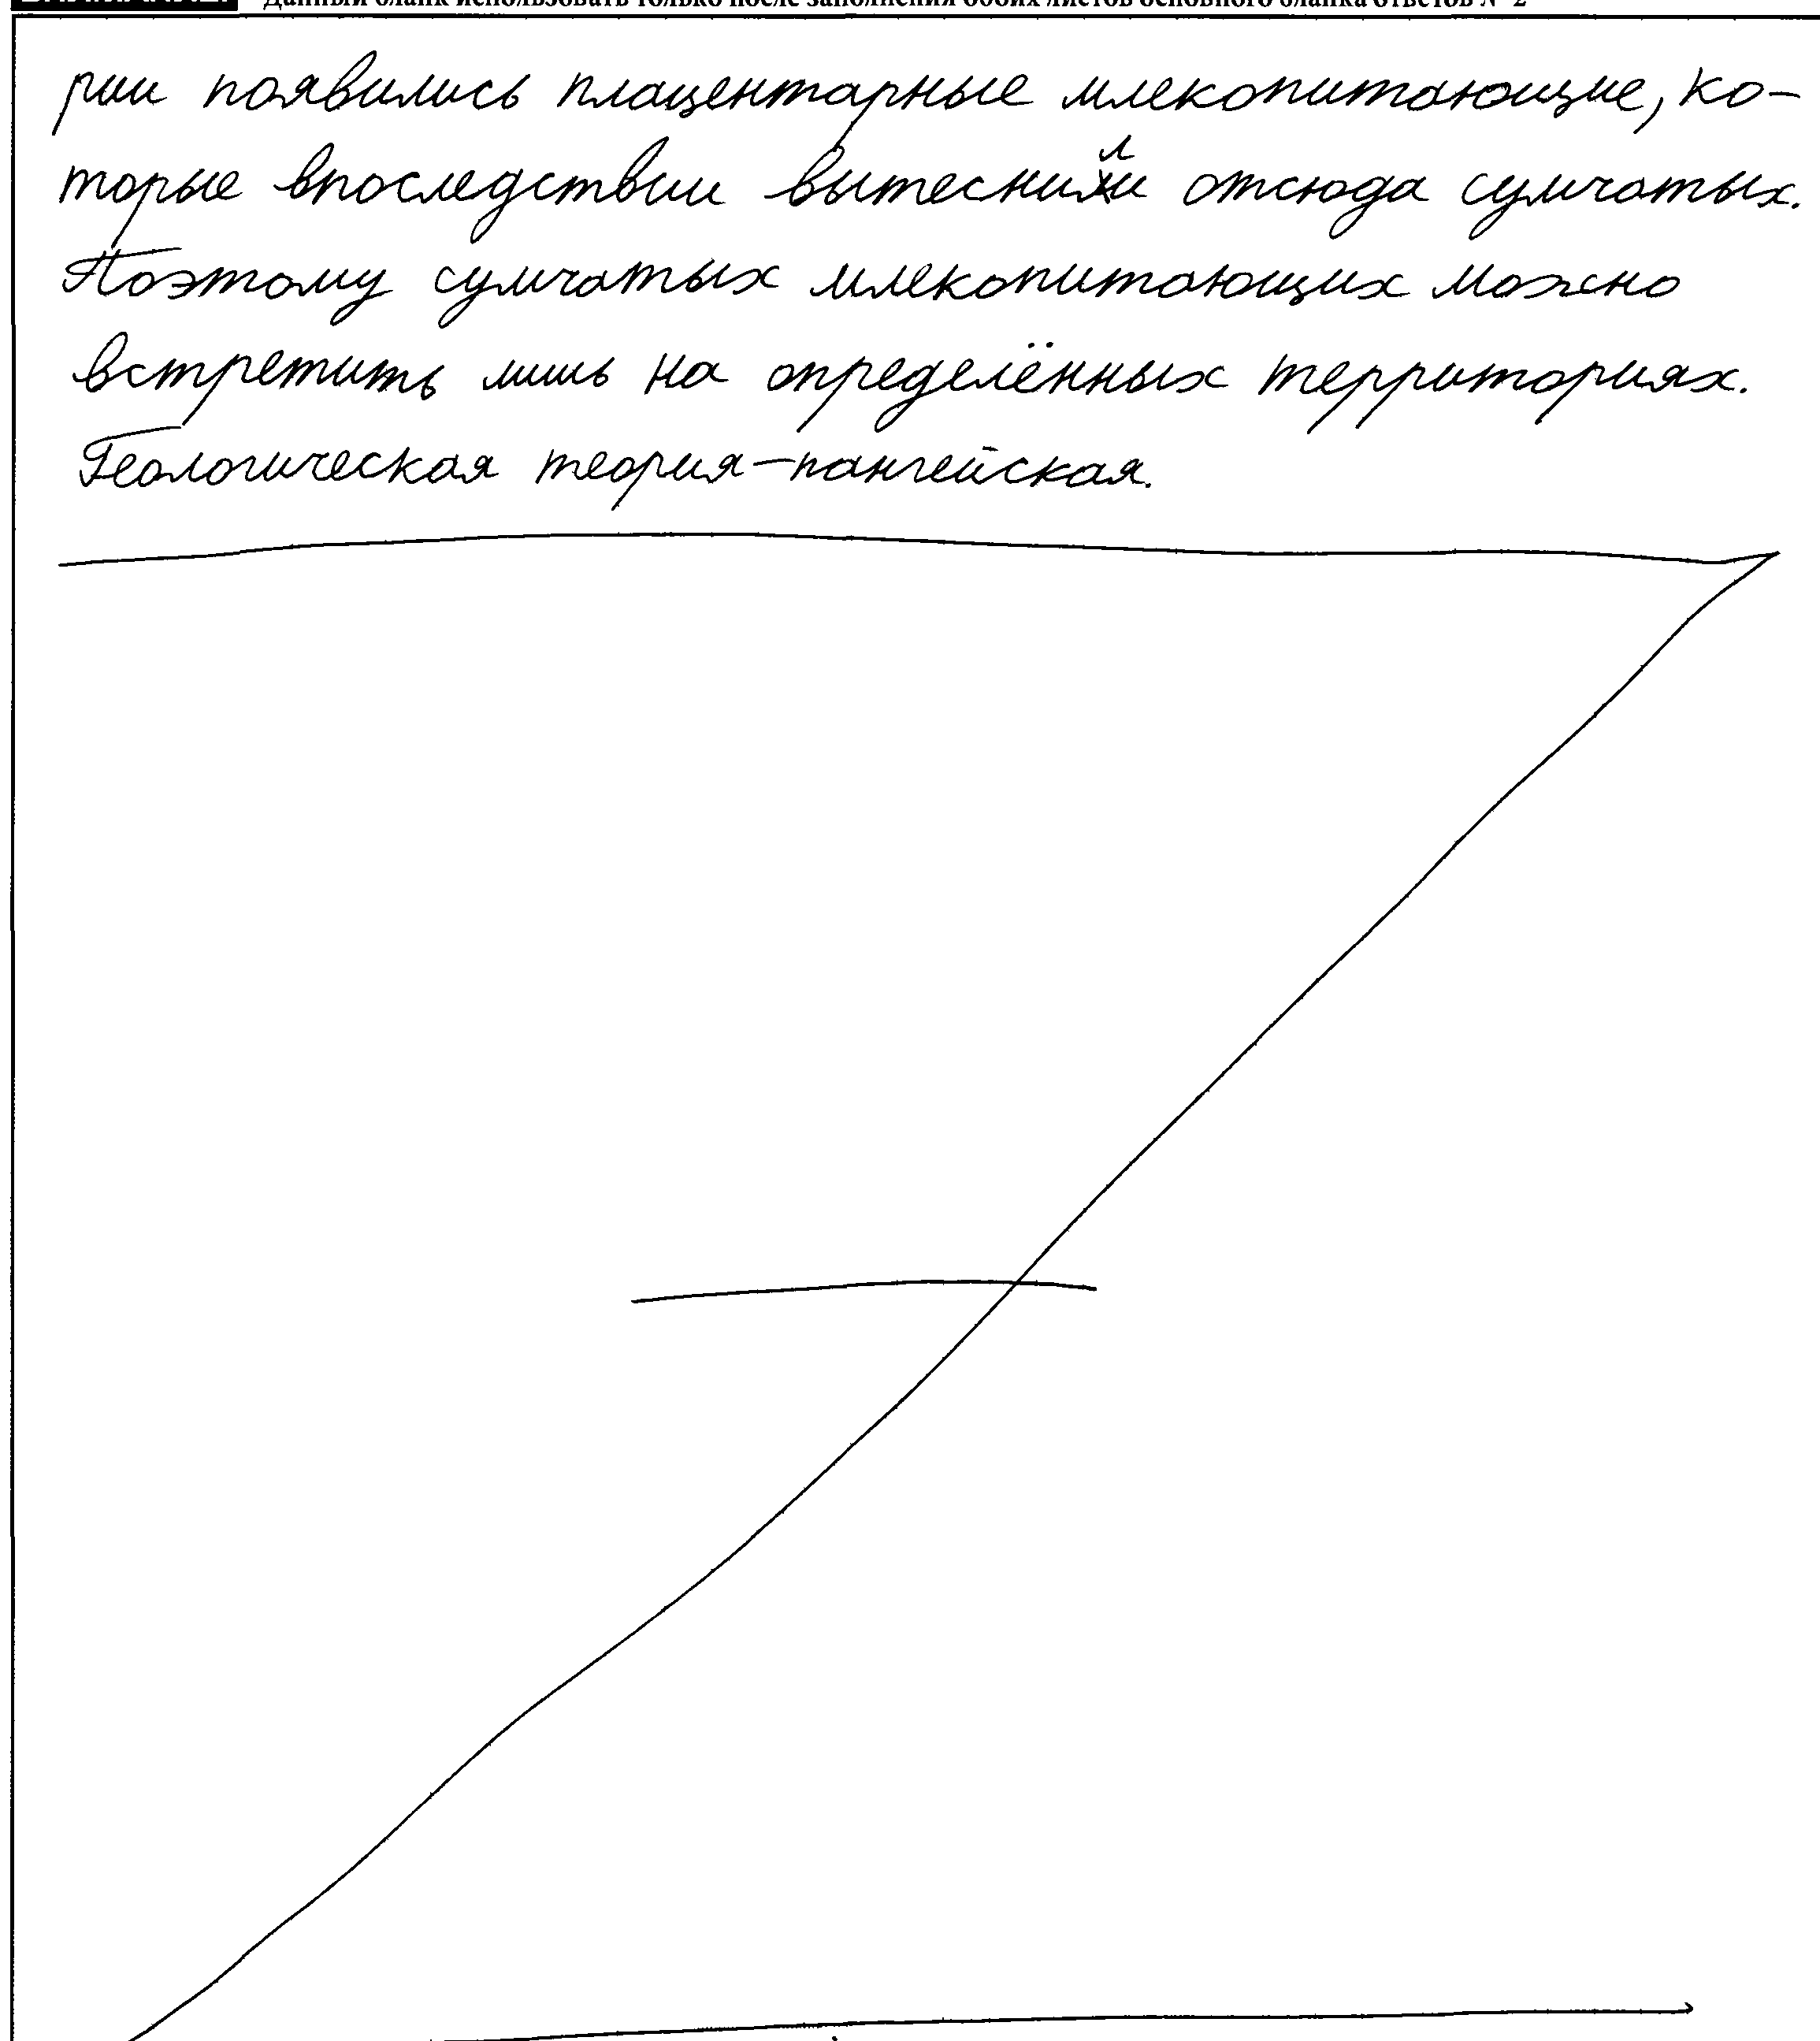 Данный бланк использовать только после заполнения обоих листов основного бланка ответов № 2
рии появились плацентарные млекопитающие, ко-
торые впоследствии вытеснили отсюда сумчатых.
Поэтому сумчатых млекопитающих можно
встретить лишь на определённых территориях.
Геологическая теория - пангейская.